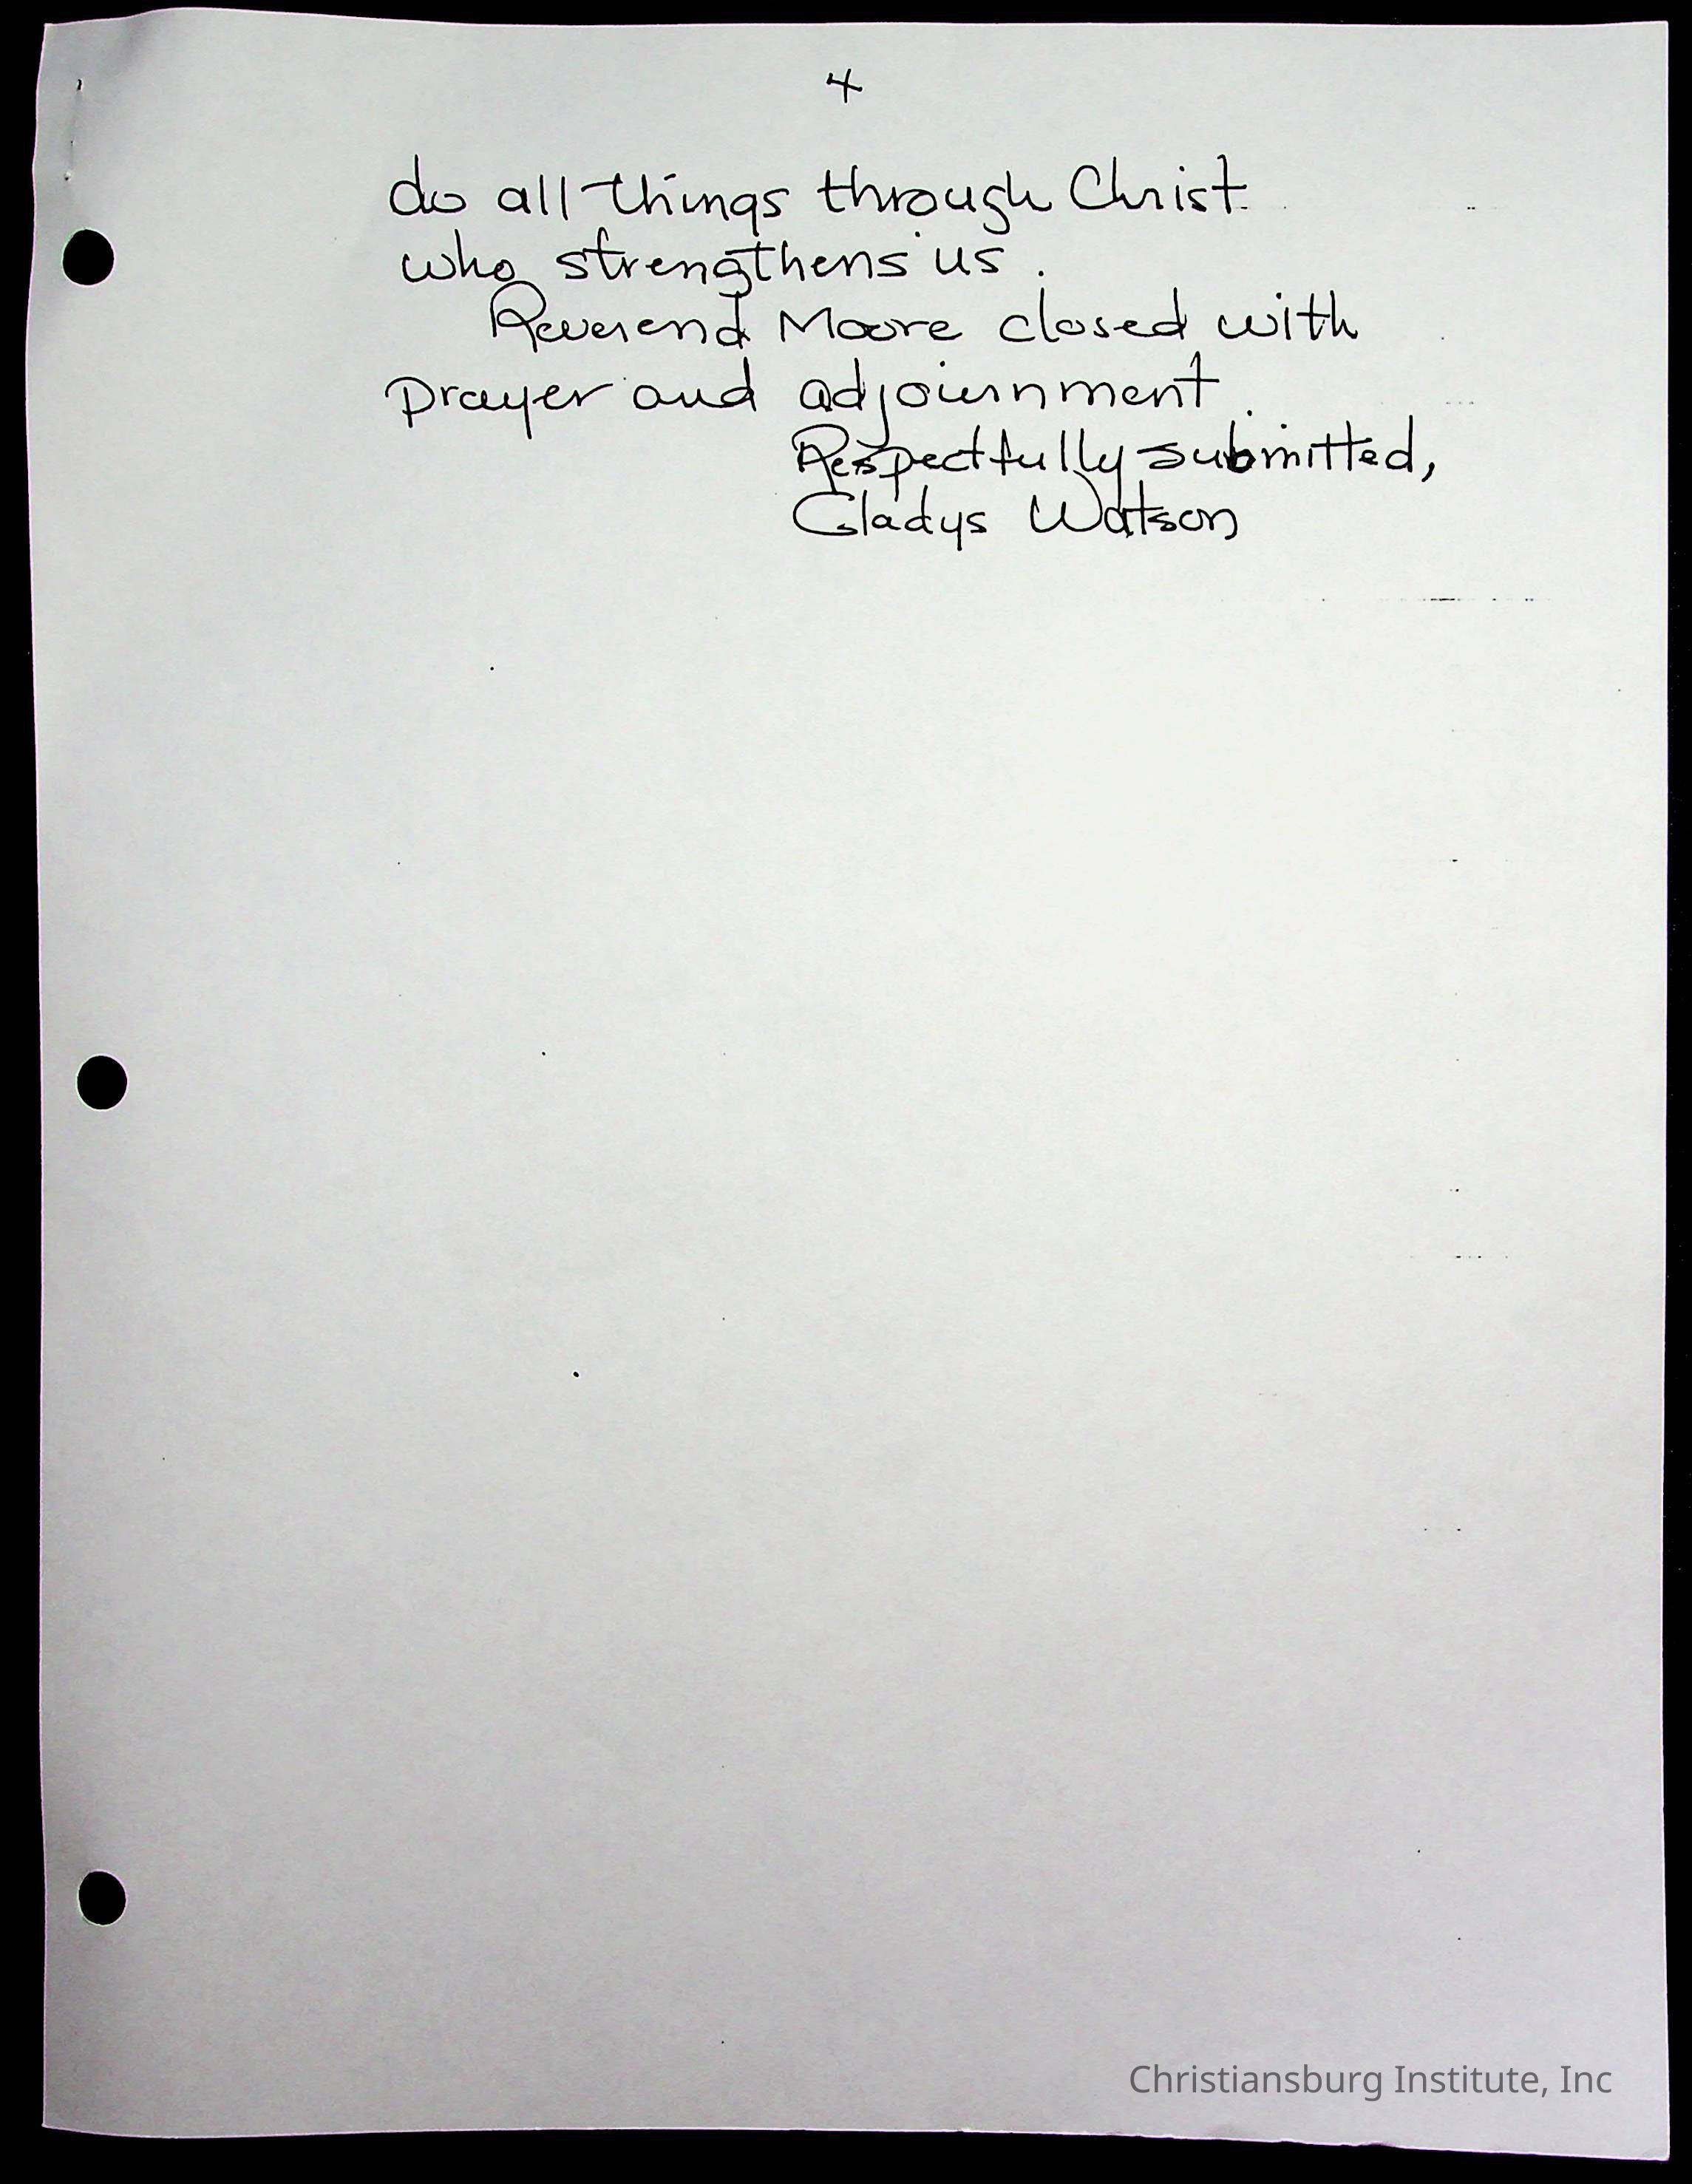 4
do all things through Christ
who strengthens us.
Reverend Moore closed with
prayer and adjournment.
Respectfully submitted,
Gladys Watson
Christiansburg Institute, Inc